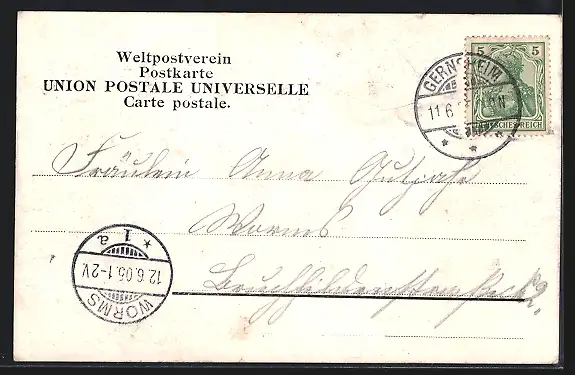 Weltpostverein
Postkarte
UNION POSTALE UNIVERSELLE
Carte postale.
5 5
DEUTSCHES REICH
GERNSHEIM
11.6
N
Fräulein Anna Gutjahr
Worms
1 a
12.6.05.1-2V.
WORMS